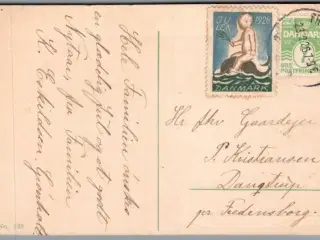 Hele Familien ønskes
en glædelig Jul og et godt
Nytaar, fra Familien
JUL 1926
DANMARK
DANMARK
Hr. Gaardejer
P. Kristiansen
pr Fredensborg.